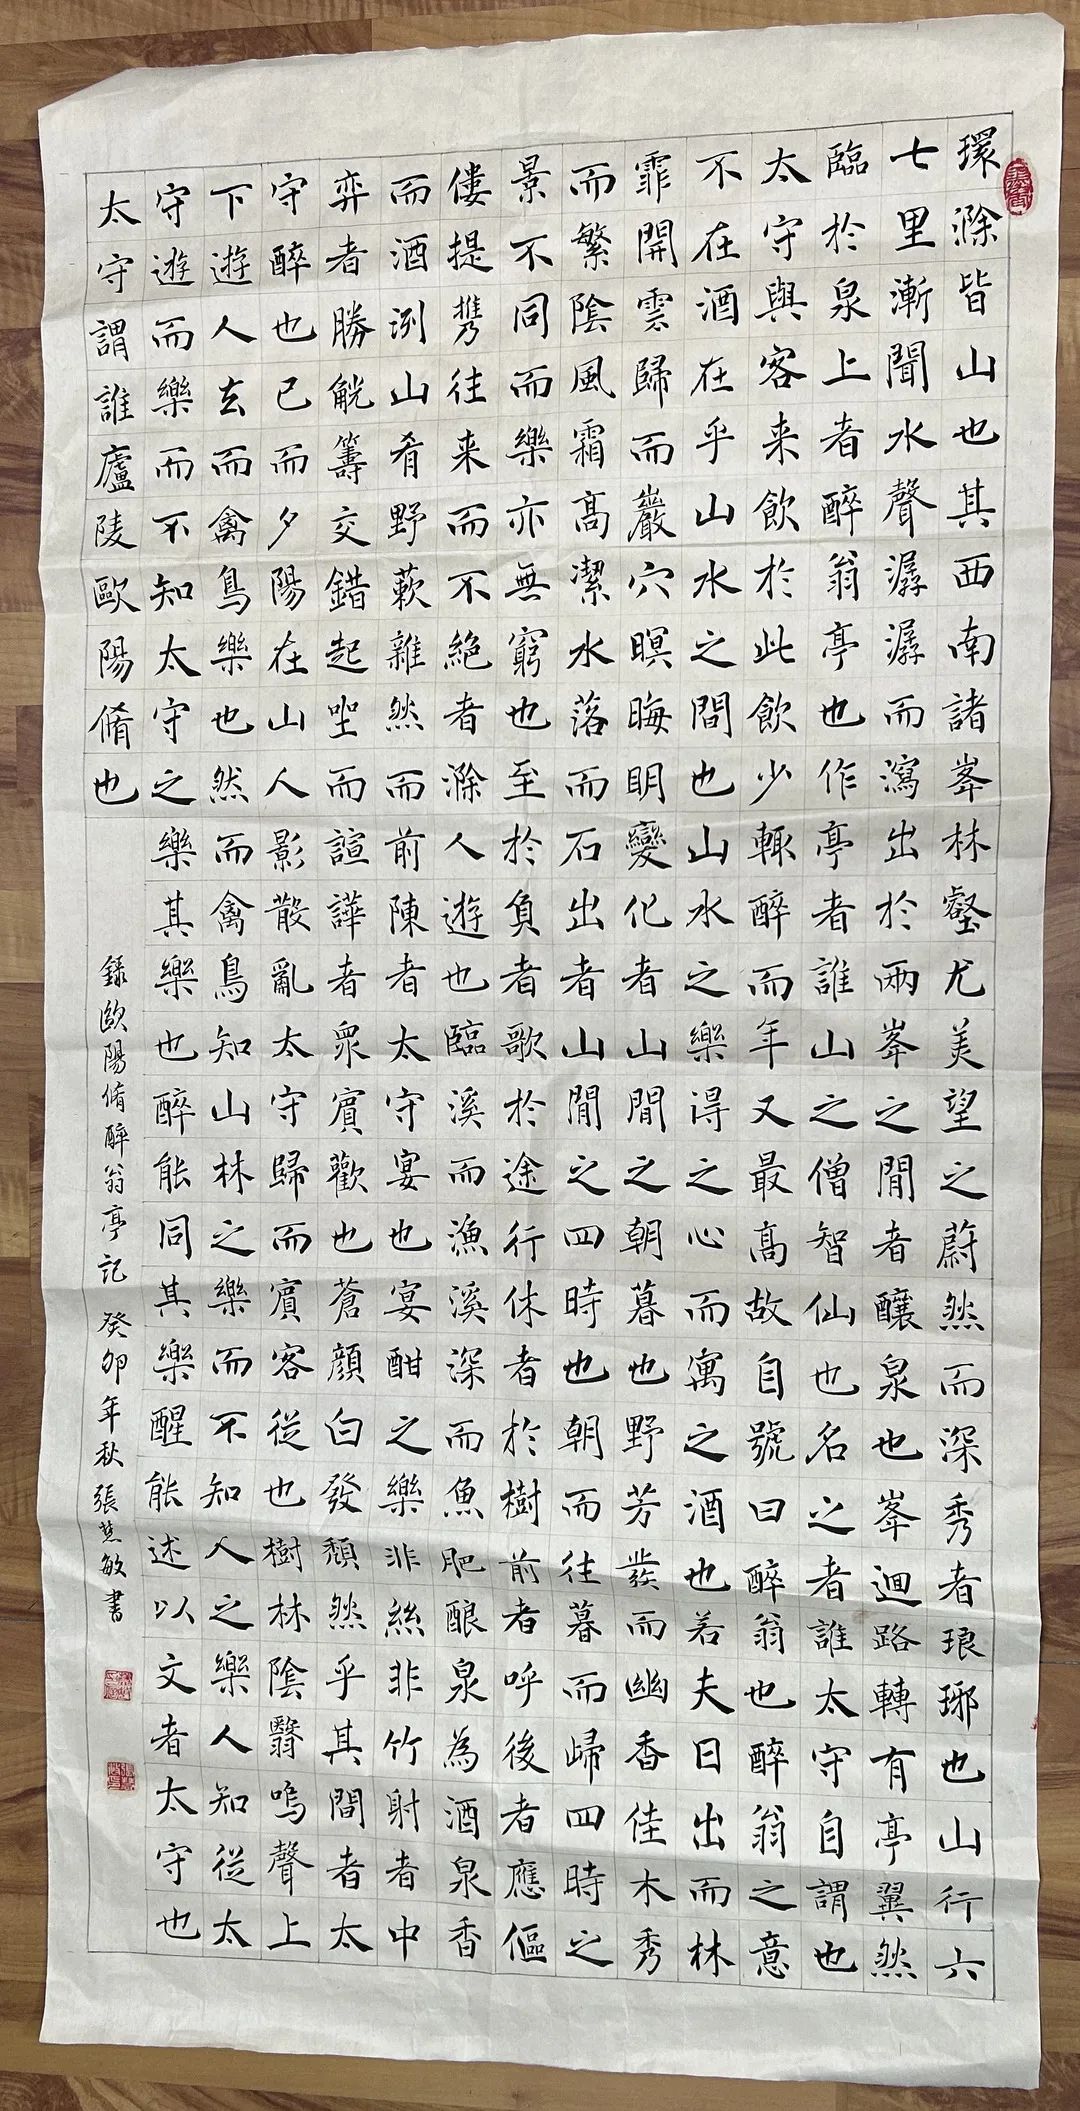 環滁皆山也其西南諸峯林壑尤美望之蔚然而深秀者琅琊也山行六
七里漸聞水聲潺潺而瀉出於兩峯之閒者釀泉也峯迴路轉有亭翼然
臨於泉上者醉翁亭也作亭者誰山之僧智仙也名之者誰太守自謂也
太守與客来飲於此飲少輒醉而年又最高故自號曰醉翁也醉翁之意
不在酒在乎山水之間也山水之樂得之心而寓之酒也若夫日出而林
霏開雲歸而巖穴暝晦明變化者山閒之朝暮也野芳發而幽香佳木秀
而繁陰風霜高潔水落而石出者山閒之四時也朝而往暮而歸四時之
景不同而樂亦無窮也至於負者歌於途行休者於樹前者呼後者應傴
僂提攜往来而不絶者滁人遊也臨溪而漁溪深而魚肥酿泉為酒泉香
而酒洌山肴野蔌雜然而前陳者太守宴也宴酣之樂非絲非竹射者中
弈者勝觥籌交錯起坐而諠譁者眾賓歡也蒼顏白發頹然乎其間者太
守醉也已而夕陽在山人影散亂太守歸而賓客從也樹林陰翳嗚聲上
下遊人去而禽鳥樂也然而禽鳥知山林之樂而不知人之樂人知從太
守遊而樂而不知太守之樂其樂也醉能同其樂醒能述以文者太守也
太守謂誰廬陵歐陽脩也
錄歐陽脩醉翁亭記 癸卯年秋張慧敏書